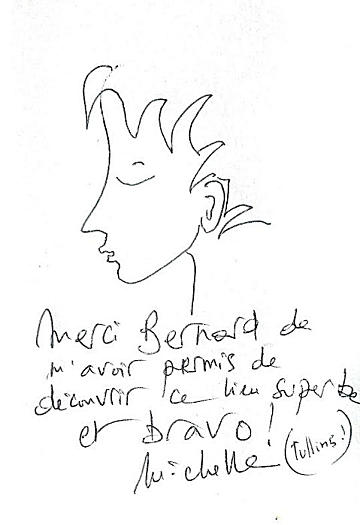 Merci Bernard de
m'avoir permis de
découvrir ce lieu superbe
et bravo !
Michelle (Tullins !)